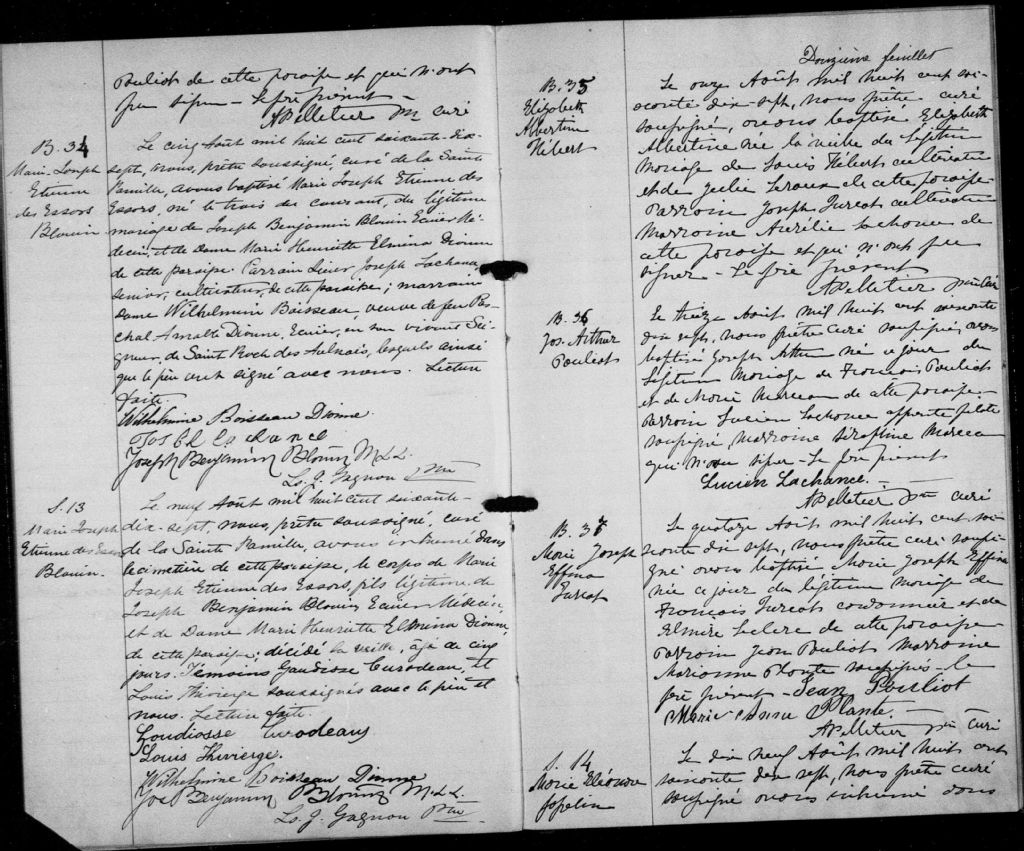 Pouliot de cette paroisse et qui n'ont
pu signer - Le père présent -
APelletier Ptre curé
B. 34
Marie Joseph
Etienne
des Essors
Blouin
Le cinq août mil huit cent soixante-dix-
sept, nous, prêtre soussigné, curé de la Sainte
Famille, avons baptisé Marie Joseph Etienne des
Essors, né le trois du courant, du légitime
mariage de Joseph Benjamin Blouin Ecuier Mé-
decin, et de Dame Marie Henriette Elmina Dionne
de cette paroisse. Parrain Sieur Joseph Lachance
senior, cultivateur, de cette paroisse; marraine
Dame Wilhelmine Boisseau, veuve de feu Pas-
chal Amable Dionne, Ecuier, en son vivant Sei-
gneur, de Saint Roch des Aulnais, lesquels ainsi
que le père ont signé avec nous. Lecture
faite.
Wilhelmine Boisseau Dionne
Joseph Lachance
Joseph Benjamin Blouin M.L.L.
Ls. J. Gagnon Ptre
S. 13
Marie Joseph
Etienne des Essors
Blouin.
Le neuf août mil huit cent soixante-
dix-sept, nous, prêtre soussigné, curé
de la Sainte Famille, avons inhumé dans
le cimetière de cette paroisse, le corps de Marie
Joseph Etienne des Essors, fils légitime de
Joseph Benjamin Blouin, Ecuier, Médecin,
et de Dame Marie Henriette Elmina Dionne,
de cette paroisse; décédé la veille, âgé de cinq
jours. Témoins Gaudiose Turodeau, et
Louis Thivierge soussignés avec le père et
nous. Lecture faite.
Goudiosse Turodeau
Louis Thivierge.
Wilhelmine Boisseau Dionne
Jos Benjamin Blouin M.L.L.
Ls. J. Gagnon Ptre
Douzième feuillet
B. 35
Elizabeth
Albertine
Hébert
Le onze Août mil huit cent soi-
xante dix-sept, nous prêtre curé
soussigné, avons baptisé Elizabeth
Albertine née la veille du légitime
mariage de Louis Hébert cultivateur
et de Julie Leroux de cette paroisse
Parrain Joseph Turcot cultivateur
Marraine Aurélie Lachance de
cette paroisse et qui n'ont pu
signer - Le père présent
APelletier Ptre curé
B. 36
Jos. Arthur
Pouliot
Le treize Août mil huit cent soixante
dix sept, nous prêtre curé soussigné, avons
baptisé Joseph Arthur né ce jour du
légitime mariage de François Pouliot
et de Marie Marceau de cette paroisse.
Parrain Lucien Lachance apprenti pilote
soussigné Marraine Séraphine Marceau
qui n'a su signer - Le père présent
Lucien Lachance.
APelletier Ptre curé
B. 37
Marie Joseph
Effina
Turcot
Le quatorze Août mil huit cent soi-
xante dix sept, nous prêtre curé soussi-
gné avons baptisé Marie Joseph Effina
née ce jour du légitime mariage de
François Turcot cordonnier et de
Elmire Leclerc de cette paroisse
Parrain Jean Pouliot Marraine
Marianne Plante soussignés - le
père présent - Jean Pouliot
Marie Anna Plante. -
APelletier Ptre curé
S. 14
Marie Eléonore
Le dix neuf Août mil huit cent
soixante dix sept, nous prêtre curé
soussigné avons inhumé dans